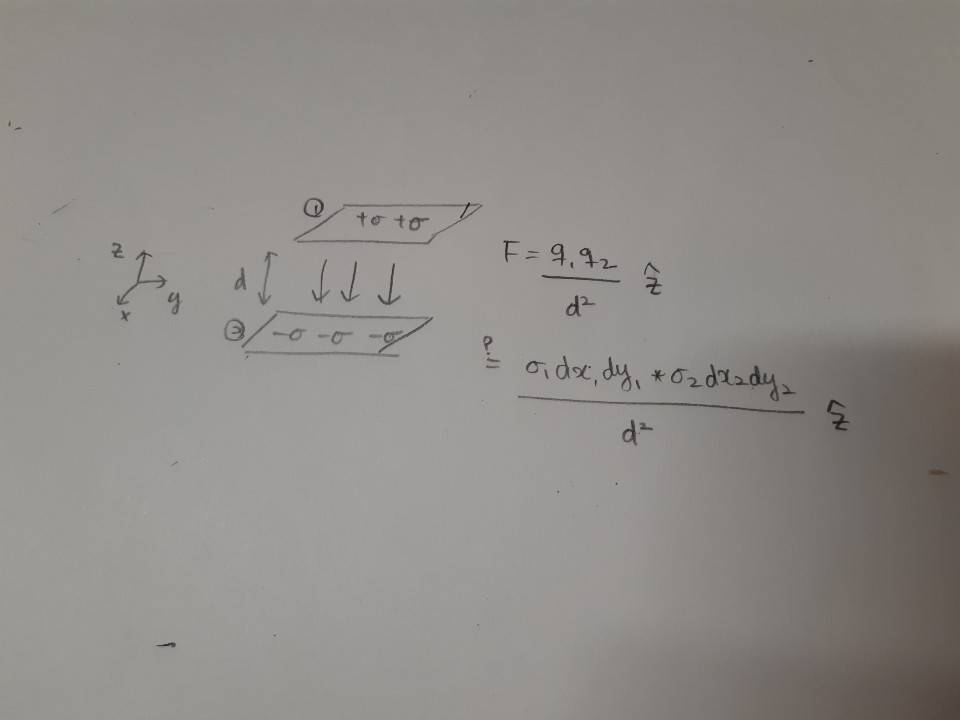 ①
+σ +σ
z
y
x
d
②
-σ -σ -σ
F = q₁q₂ / d² ẑ
≟ σ₁dx₁dy₁ * σ₂dx₂dy₂ / d² ẑ